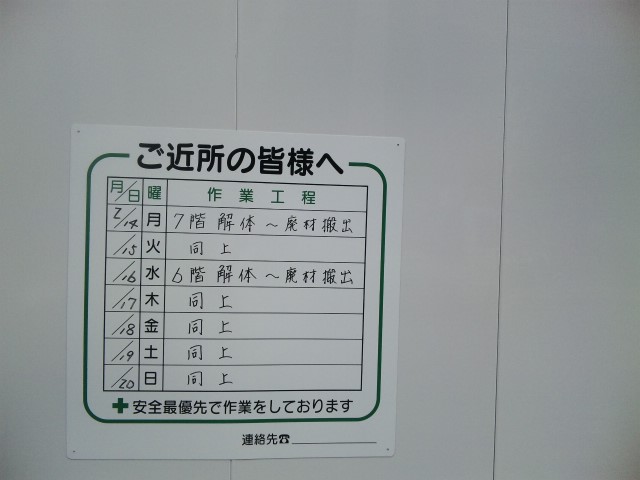 ご近所の皆様へ
月/日 曜 作業工程
2/14 月 7階解体～廃材搬出
/15 火 同上
/16 水 6階解体～廃材搬出
/17 木 同上
/18 金 同上
/19 土 同上
/20 日 同上
✚安全最優先で作業をしております
連絡先☎